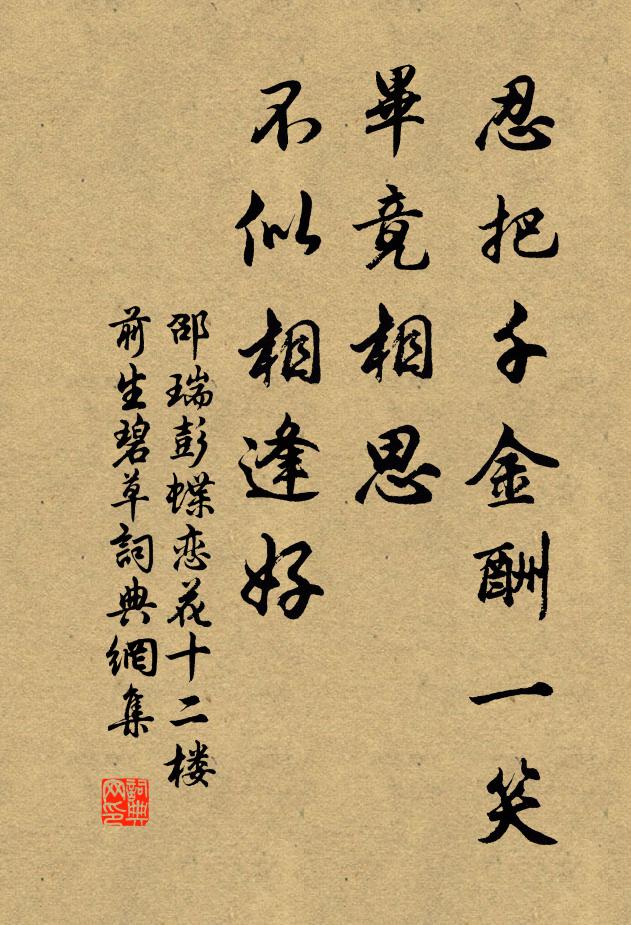 忍把千金酬一笑
畢竟相思
不似相逢好
邵瑞彭蝶恋花十二楼
前生碧草詞典網集
詞典
网印